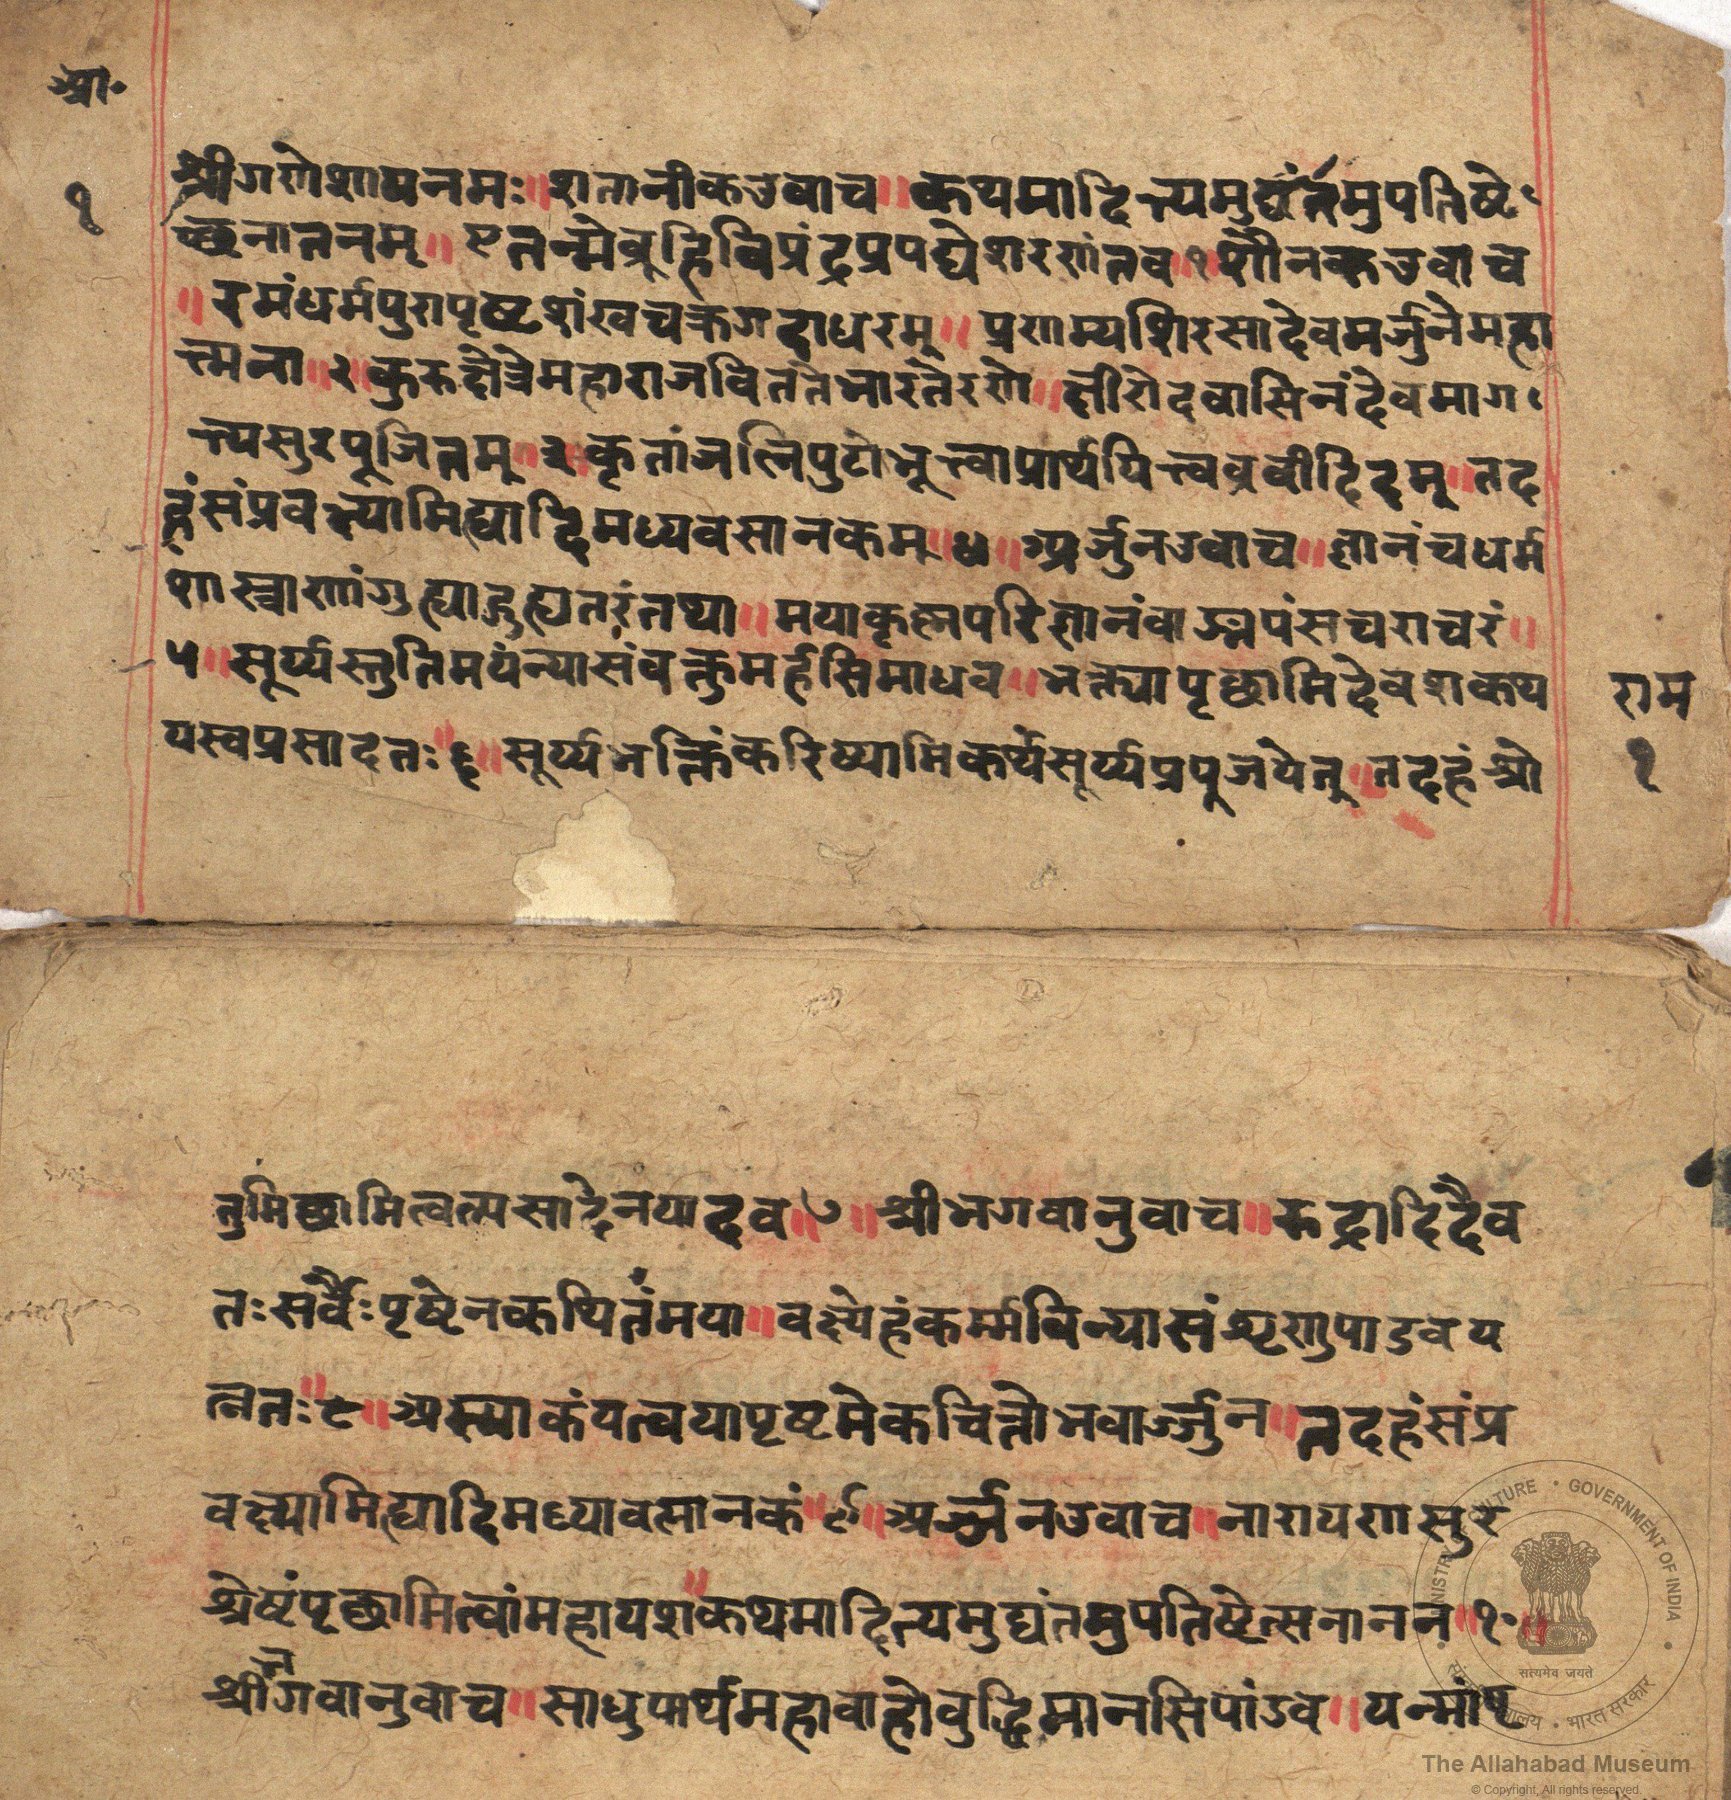 आ॰
१
श्रीगणेशायनमः॥शतानीकउवाच॥कथमादित्यमुद्यंतमुपतिष्टे
च्छनातनम्॥एतन्मेव्रूहिविप्रंद्रप्रपद्येशरणंतव१शौनकउवाच
॥इमंधर्मपुरापृष्टशंखचक्रगदाधरम्॥प्रणम्यशिरसादेवमर्जुनेमहा
त्मना॥२॥कुरुक्षेत्रेमहाराजविततेभारतेरणे॥क्षीरोदवासिनंदेवमाग
त्यसुरपूजितम्॥३कृतांजलिपुटोभूत्वाप्रार्थयित्वव्रवीदिदम्॥तद
हंसंप्रवक्ष्यामिह्यादिमध्यवसानकम्॥४॥अर्जुनउवाच॥ज्ञानंचधर्म
शास्त्राणांगुह्याद्गुह्यतरंतथा॥मयाकृष्णपरिज्ञानंवाङ्मयंसचराचरं॥
५॥सूर्य्यस्तुतिमयंन्यासंवक्तुमर्हसिमाधव॥भक्त्यापृछामिदेवशकथ
यस्वप्रसादतः॥६॥सूर्य्यभक्तिंकरिष्यामिकथंसूर्य्यप्रपूजयेत्॥तदहंश्रो
राम
१
तुमिछामित्वत्प्रसादेनयादव॥७॥श्रीभगवानुवाच॥रुद्रादिदैव
तःसर्वैःपृष्टेनकथितंमया॥वक्ष्येहंकर्म्मविन्यासंशृणुपाडवय
त्नतः॥८॥अस्माकंयत्वयापृष्टमेकचित्तोभवार्ज्जुन॥तदहंसंप्र
वक्ष्यामिह्यादिमध्यावसानकं॥९॥अर्ज्जुनउवाच॥नारायणसुर
श्रेष्टंपृछामित्वांमहायश॥कथमादित्यमुद्यंतमुपतिष्टेत्सनातन॥१०॥
श्रीभगवानुवाच॥साधुपार्थमहावाहोवुद्धिमानसिपांडव॥यन्मांपृ
MINISTRY OF CULTURE • GOVERNMENT OF INDIA
सत्यमेव जयते
संस्कृति मंत्रालय • भारत सरकार
The Allahabad Museum
© Copyright, All rights reserved.